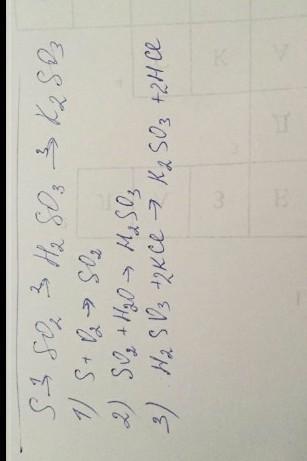 S →¹ SO₂ →² H₂SO₃ →³ K₂SO₃
1) S + O₂ → SO₂
2) SO₂ + H₂O → H₂SO₃
3) H₂SO₃ + 2KCl → K₂SO₃ + 2HCl